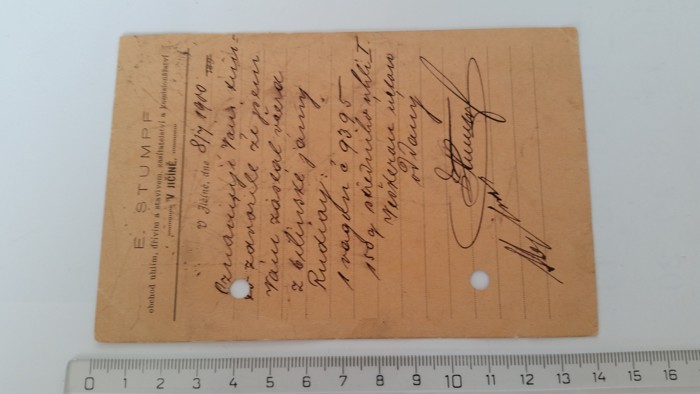 E. STUMPF
obchod uhlím, dřívím a stavivem, zasílatelství a komisionářství
V JIČÍNĚ.
V Jičíně, dne 8/7 1900
Oznamuji Vám tím-
to zdvořile že jsem
Vám zaslal včera
z bílinské jámy
Rudiay:
1 vagón č 9395
150 q středního uhlí I.
Veškerou úctou
oddaný
E Stumpf
0 1 2 3 4 5 6 7 8 9 10 11 12 13 14 15 16